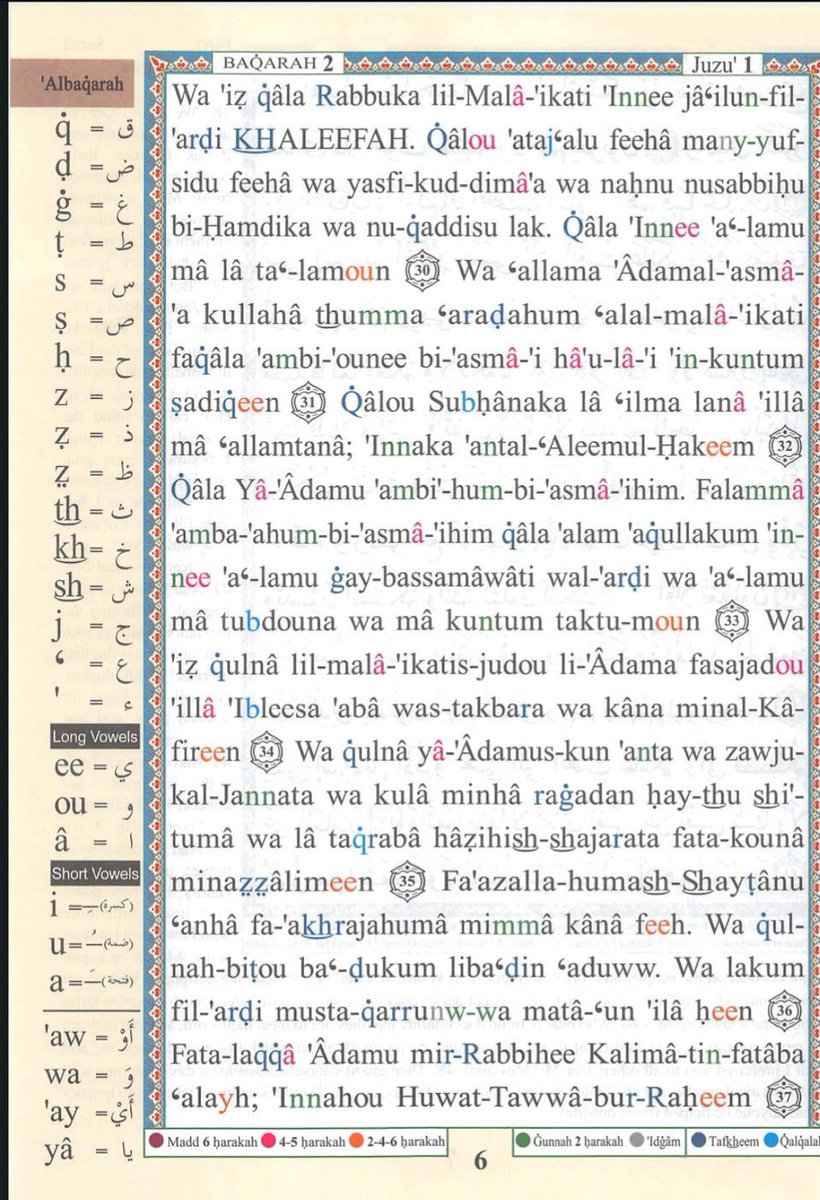 BAQ̇ARAH 2
Juzu' 1
'Albaq̇arah
q̇ = ق
ḍ = ض
ġ = غ
ṭ = ط
s = س
ṣ = ص
ḥ = ح
z = ز
ẓ = ذ
ẓ̤ = ظ
th = ث
kh = خ
sh = ش
j = ج
ʻ = ع
' = ء
Long Vowels
ee = ي
ou = و
â = ا
Short Vowels
i = ـِ (كسرة)
u = ـُ (ضمة)
a = ـَ (فتحة)
'aw = أَوْ
wa = وَ
'ay = أَيْ
yâ = يا
Wa 'iẓ q̇âla Rabbuka lil-Malâ-'ikati 'Innee jâʻilun-fil-
'arḍi KHALEEFAH. Q̇âlou 'atajʻalu feehâ many-yuf-
sidu feehâ wa yasfi-kud-dimâ'a wa naḥnu nusabbiḥu
bi-Hamdika wa nu-q̇addisu lak. Q̇âla 'Innee 'aʻ-lamu
mâ lâ taʻ-lamoun 30 Wa ʻallama 'Âdamal-'asmâ-
'a kullahâ thumma ʻaraḍahum ʻalal-malâ-'ikati
faq̇âla 'ambi-'ounee bi-'asmâ-'i hâ'u-lâ-'i 'in-kuntum
ṣadiq̇een 31 Q̇âlou Subḥânaka lâ ʻilma lanâ 'illâ
mâ ʻallamtanâ; 'Innaka 'antal-ʻAleemul-Ḥakeem 32
Q̇âla Yâ-'Âdamu 'ambi'-hum-bi-'asmâ-'ihim. Falammâ
'amba-'ahum-bi-'asmâ-'ihim q̇âla 'alam 'aq̇ullakum 'in-
nee 'aʻ-lamu ġay-bassamâwâti wal-'arḍi wa 'aʻ-lamu
mâ tubdouna wa mâ kuntum taktu-moun 33 Wa
'iẓ q̇ulnâ lil-malâ-'ikatis-judou li-'Âdama fasajadou
'illâ 'Ibleesa 'abâ was-takbara wa kâna minal-Kâ-
fireen 34 Wa q̇ulnâ yâ-'Âdamus-kun 'anta wa zawju-
kal-Jannata wa kulâ minhâ raġadan ḥay-thu shi'-
tumâ wa lâ taq̇rabâ hâẓihish-shajarata fata-kounâ
minaẓ̤ẓ̤âlimeen 35 Fa'azalla-humash-Shayṭânu
ʻanhâ fa-'akhrajahumâ mimmâ kânâ feeh. Wa q̇ul-
nah-biṭou baʻ-ḍukum libaʻḍin ʻaduww. Wa lakum
fil-'arḍi musta-q̇arrunw-wa matâ-ʻun 'ilâ ḥeen 36
Fata-laq̇q̇â 'Âdamu mir-Rabbihee Kalimâ-tin-fatâba
ʻalayh; 'Innahou Huwat-Tawwâ-bur-Raḥeem 37
Madd 6 ḥarakah 4-5 ḥarakah 2-4-6 ḥarakah
Ġunnah 2 ḥarakah 'Idġâm Tafkheem Q̇alq̇alah
6